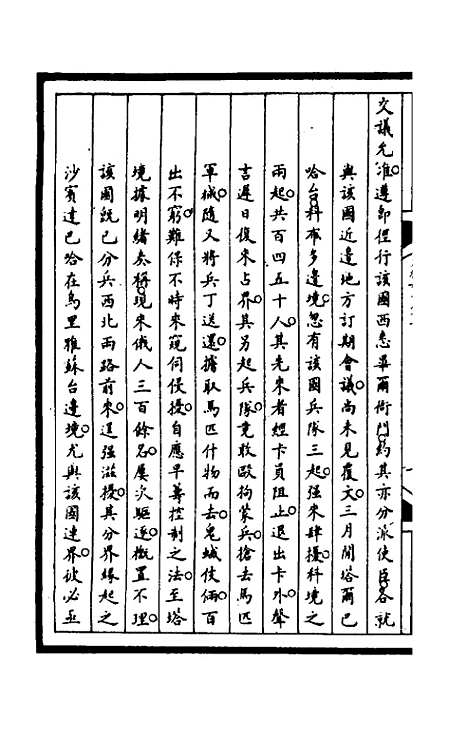 文議允准遵即徑行該國西悉畢爾衙門約其亦分派使臣各就
與該國近邊地方訂期會議尚未見覆文三月間塔爾巴
哈台科布多邊境忽有該國兵隊三起强來肆擾科境之
兩起共百四五十人其先來者經卡員阻止退出卡外聲
言遲日復來占界其另起兵隊竟敢毆拘蒙兵搶去馬匹
軍械隨又將兵丁送還攄取馬匹什物而去鬼蜮伎倆百
出不窮難保不時來窺伺侵擾自應早籌控制之法至塔
境據明緒奏稱現來俄人三百餘名屢次驅逐概置不理
該國既已分兵西北兩路前來逞强滋擾其分界緣起之
沙賓達巴哈在烏里雅蘇台邊境尤與該國連界彼必亟